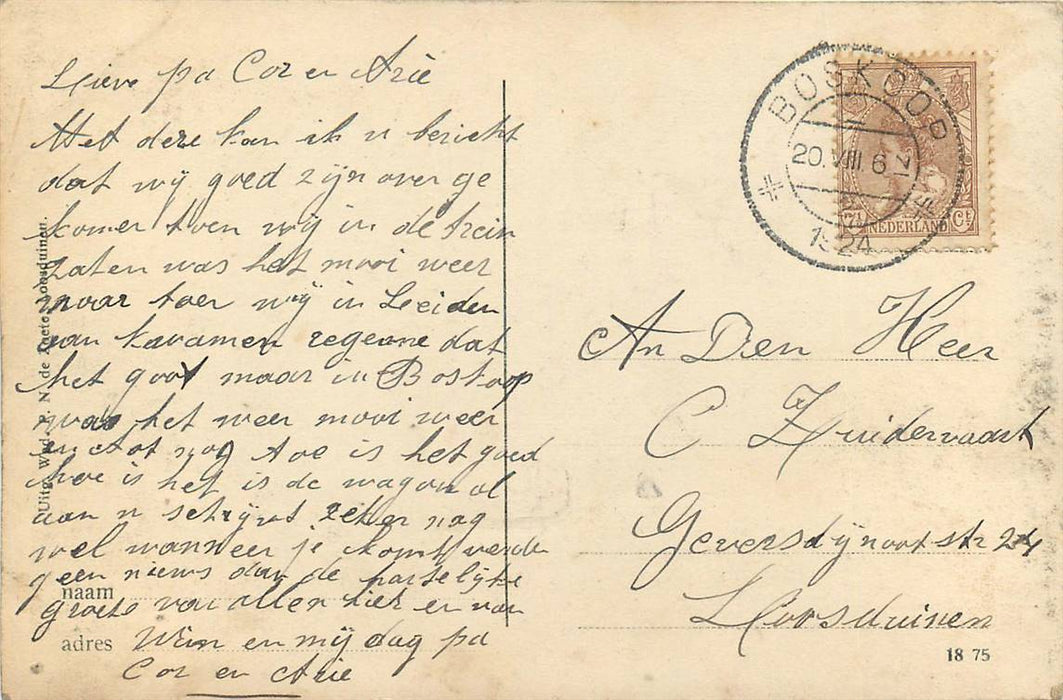 Lieve pa Cor en Arie
Met deze kan ik u bericht
dat wij goed zijn over ge
komen toen wij in de trein
zaten was het mooi weer
maar toen wij in Leiden
aan kwamen regenne dat
het goot maar in Boskoop
was het weer mooi weer
en tot nog toe is het goed
hoe is het is de wagen al
aan u schrijvst zeker nag
wel wanneer je komt verder
geen nieuws dan de hartelijke
groete van allen hier en van
Wim en mij dag pa
Cor en Arie
naam
adres
Uitg. Wed. P. N. de Zoete, Loosduinen.
BOSKOOP
20.VIII 6
1924
7½ NEDERLAND Ct
An Den Heer
C Zuidervaart
Geversdijnootstr 24
Loosduinen
18 75